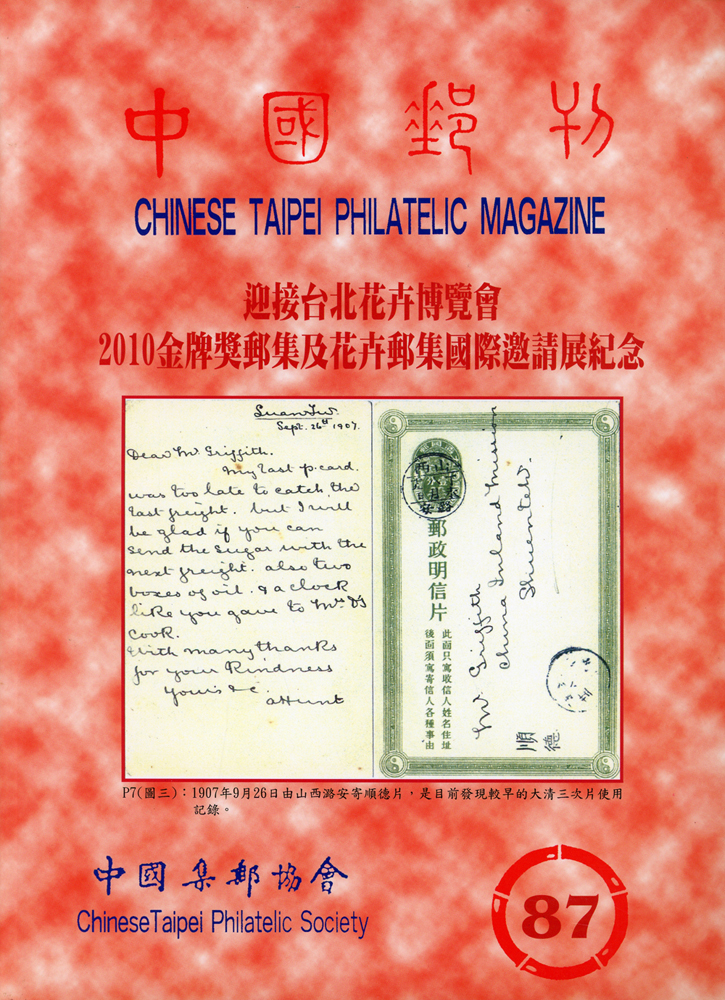 中國郵刊
CHINESE TAIPEI PHILATELIC MAGAZINE
迎接台北花卉博覽會
2010金牌獎郵集及花卉郵集國際邀請展紀念
Luan Fu.
Sept. 26th 1907.
Dear Mr. Griffith.
My last p. card.
was too late to catch the
last freight. but I will
be glad if you can
send the sugar with the
next freight. also two
boxes of oil. & a clock
like you gave to Mrs D's
cook.
With many thanks
for your kindness
yours &c.
a Hunt
郵政明信片
此面只寫收信人姓名住址
後面須寫寄信人各種事由
Mr Griffith
China Inland Mission
Shuentehfu.
順德
P7(圖三):1907年9月26日由山西潞安寄順德片,是目前發現較早的大清三次片使用
記錄。
中國集郵協會
Chinese Taipei Philatelic Society
87